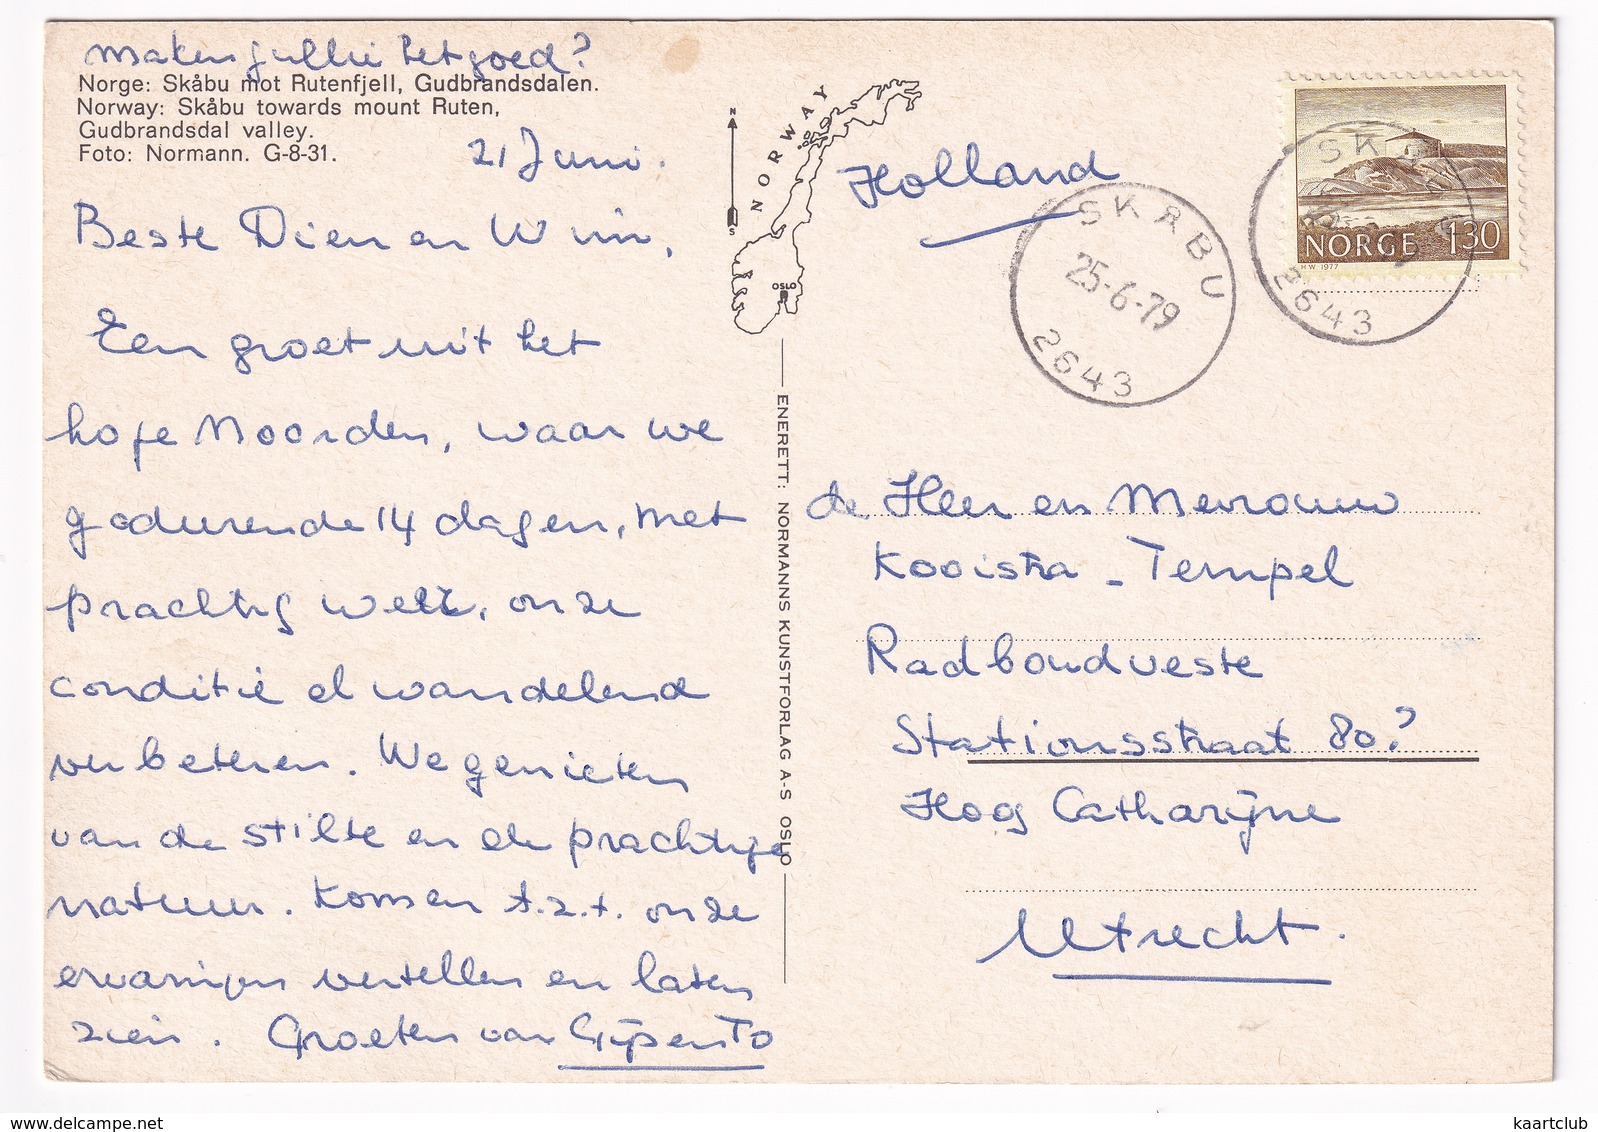 Maken jullie het goed?
Norge: Skåbu mot Rutenfjell, Gudbrandsdalen.
Norway: Skåbu towards mount Ruten,
Gudbrandsdal valley.
Foto: Normann. G-8-31.
21 Juni.
Beste Dien en Wim,
Een groet uit het
hoge Noorden, waar we
gedurende 14 dagen, met
prachtig weer, onze
conditie al wandelend
verbeteren. We genieten
van de stilte en de prachtige
natuur. Komen t.z.t. onze
ervaringen vertellen en laten
zien. Groeten van Gijs en To
N
S
NORWAY
OSLO
ENERETT: NORMANNS KUNSTFORLAG A-S OSLO
Holland
SKÅBU
25-6-79
2643
SKÅ
2643
NORGE 130
HW. 1977
de Heer en Mevrouw
Kooistra - Tempel
Radboudveste
Stationsstraat 80?
Hoog Catharijne
Utrecht.
www.delcampe.net
kaartclub